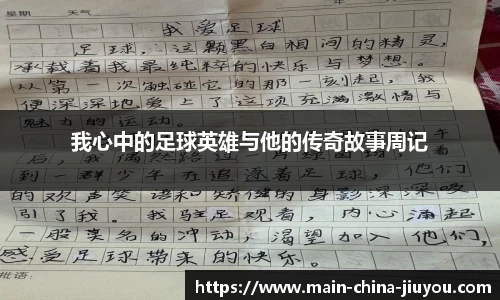 星期 天气
我爱足球
足球，这颗黑白相间的精灵，
承载着我最纯粹的快乐与梦想。
从第一次触碰它的那一刻起，我
便深深地爱上了这项充满激情与
魅力的运动。
我心中的足球英雄与他的传奇故事周记
到一群少年在追逐着足球，他们
的欢声笑语和矫健的身影深深吸
引了我。我驻足观看，内心涌起
一股莫名的冲动，渴望加入他们，
感受足球带来的快乐。
批语：
https://www.main-china-jiuyou.com